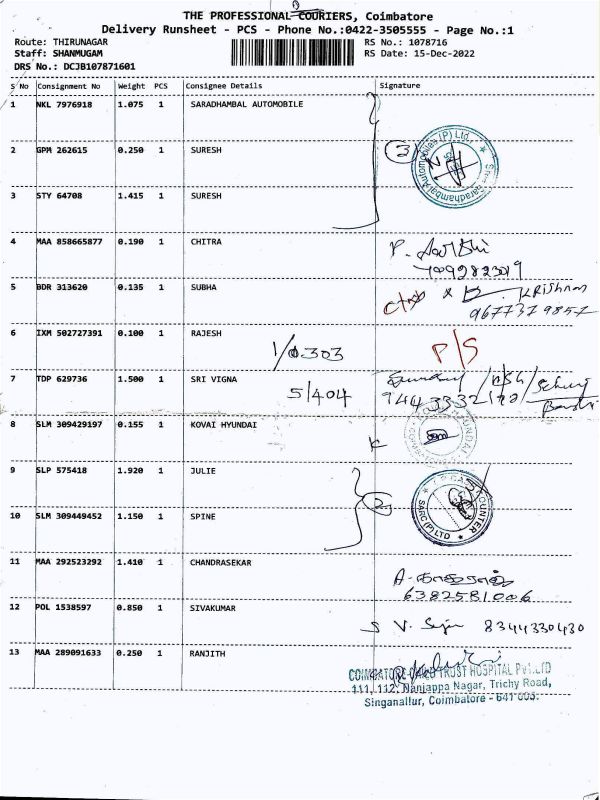 THE PROFESSIONAL COURIERS, Coimbatore
Delivery Runsheet - PCS - Phone No.:0422-3505555 - Page No.:1
Route: THIRUNAGAR RS No.: 1078716
Staff: SHANMUGAM RS Date: 15-Dec-2022
DRS No.: DCJB107871601
S No Consignment No Weight PCS Consignee Details Signature
1 NKL 7976918 1.075 1 SARADHAMBAL AUTOMOBILE
2 GPM 262615 0.250 1 SURESH 3
Saradhambal Automobiles (P) Ltd.,
3 STY 64708 1.415 1 SURESH
4 MAA 858665877 0.190 1 CHITRA P.
5 BDR 313620 0.135 1 SUBHA Krishnan
9677379857
6 IXM 502727391 0.100 1 RAJESH P/S
1/0303
7 TDP 629736 1.500 1 SRI VIGNA
5/404 9443332120
8 SLM 309429197 0.155 1 KOVAI HYUNDAI
HYUNDAI
9 SLP 575418 1.920 1 JULIE
2
SARC (P) LTD COUNTER
10 SLM 309449452 1.150 1 SPINE
11 MAA 292523292 1.410 1 CHANDRASEKAR A-
6382581006
12 POL 1538597 0.850 1 SIVAKUMAR
S V. 8344330430
13 MAA 289091633 0.250 1 RANJITH
COIMBATORE CHILD TRUST HOSPITAL Pvt.LTD
111, 112, Nanjappa Nagar, Trichy Road,
Singanallur, Coimbatore - 641 005.